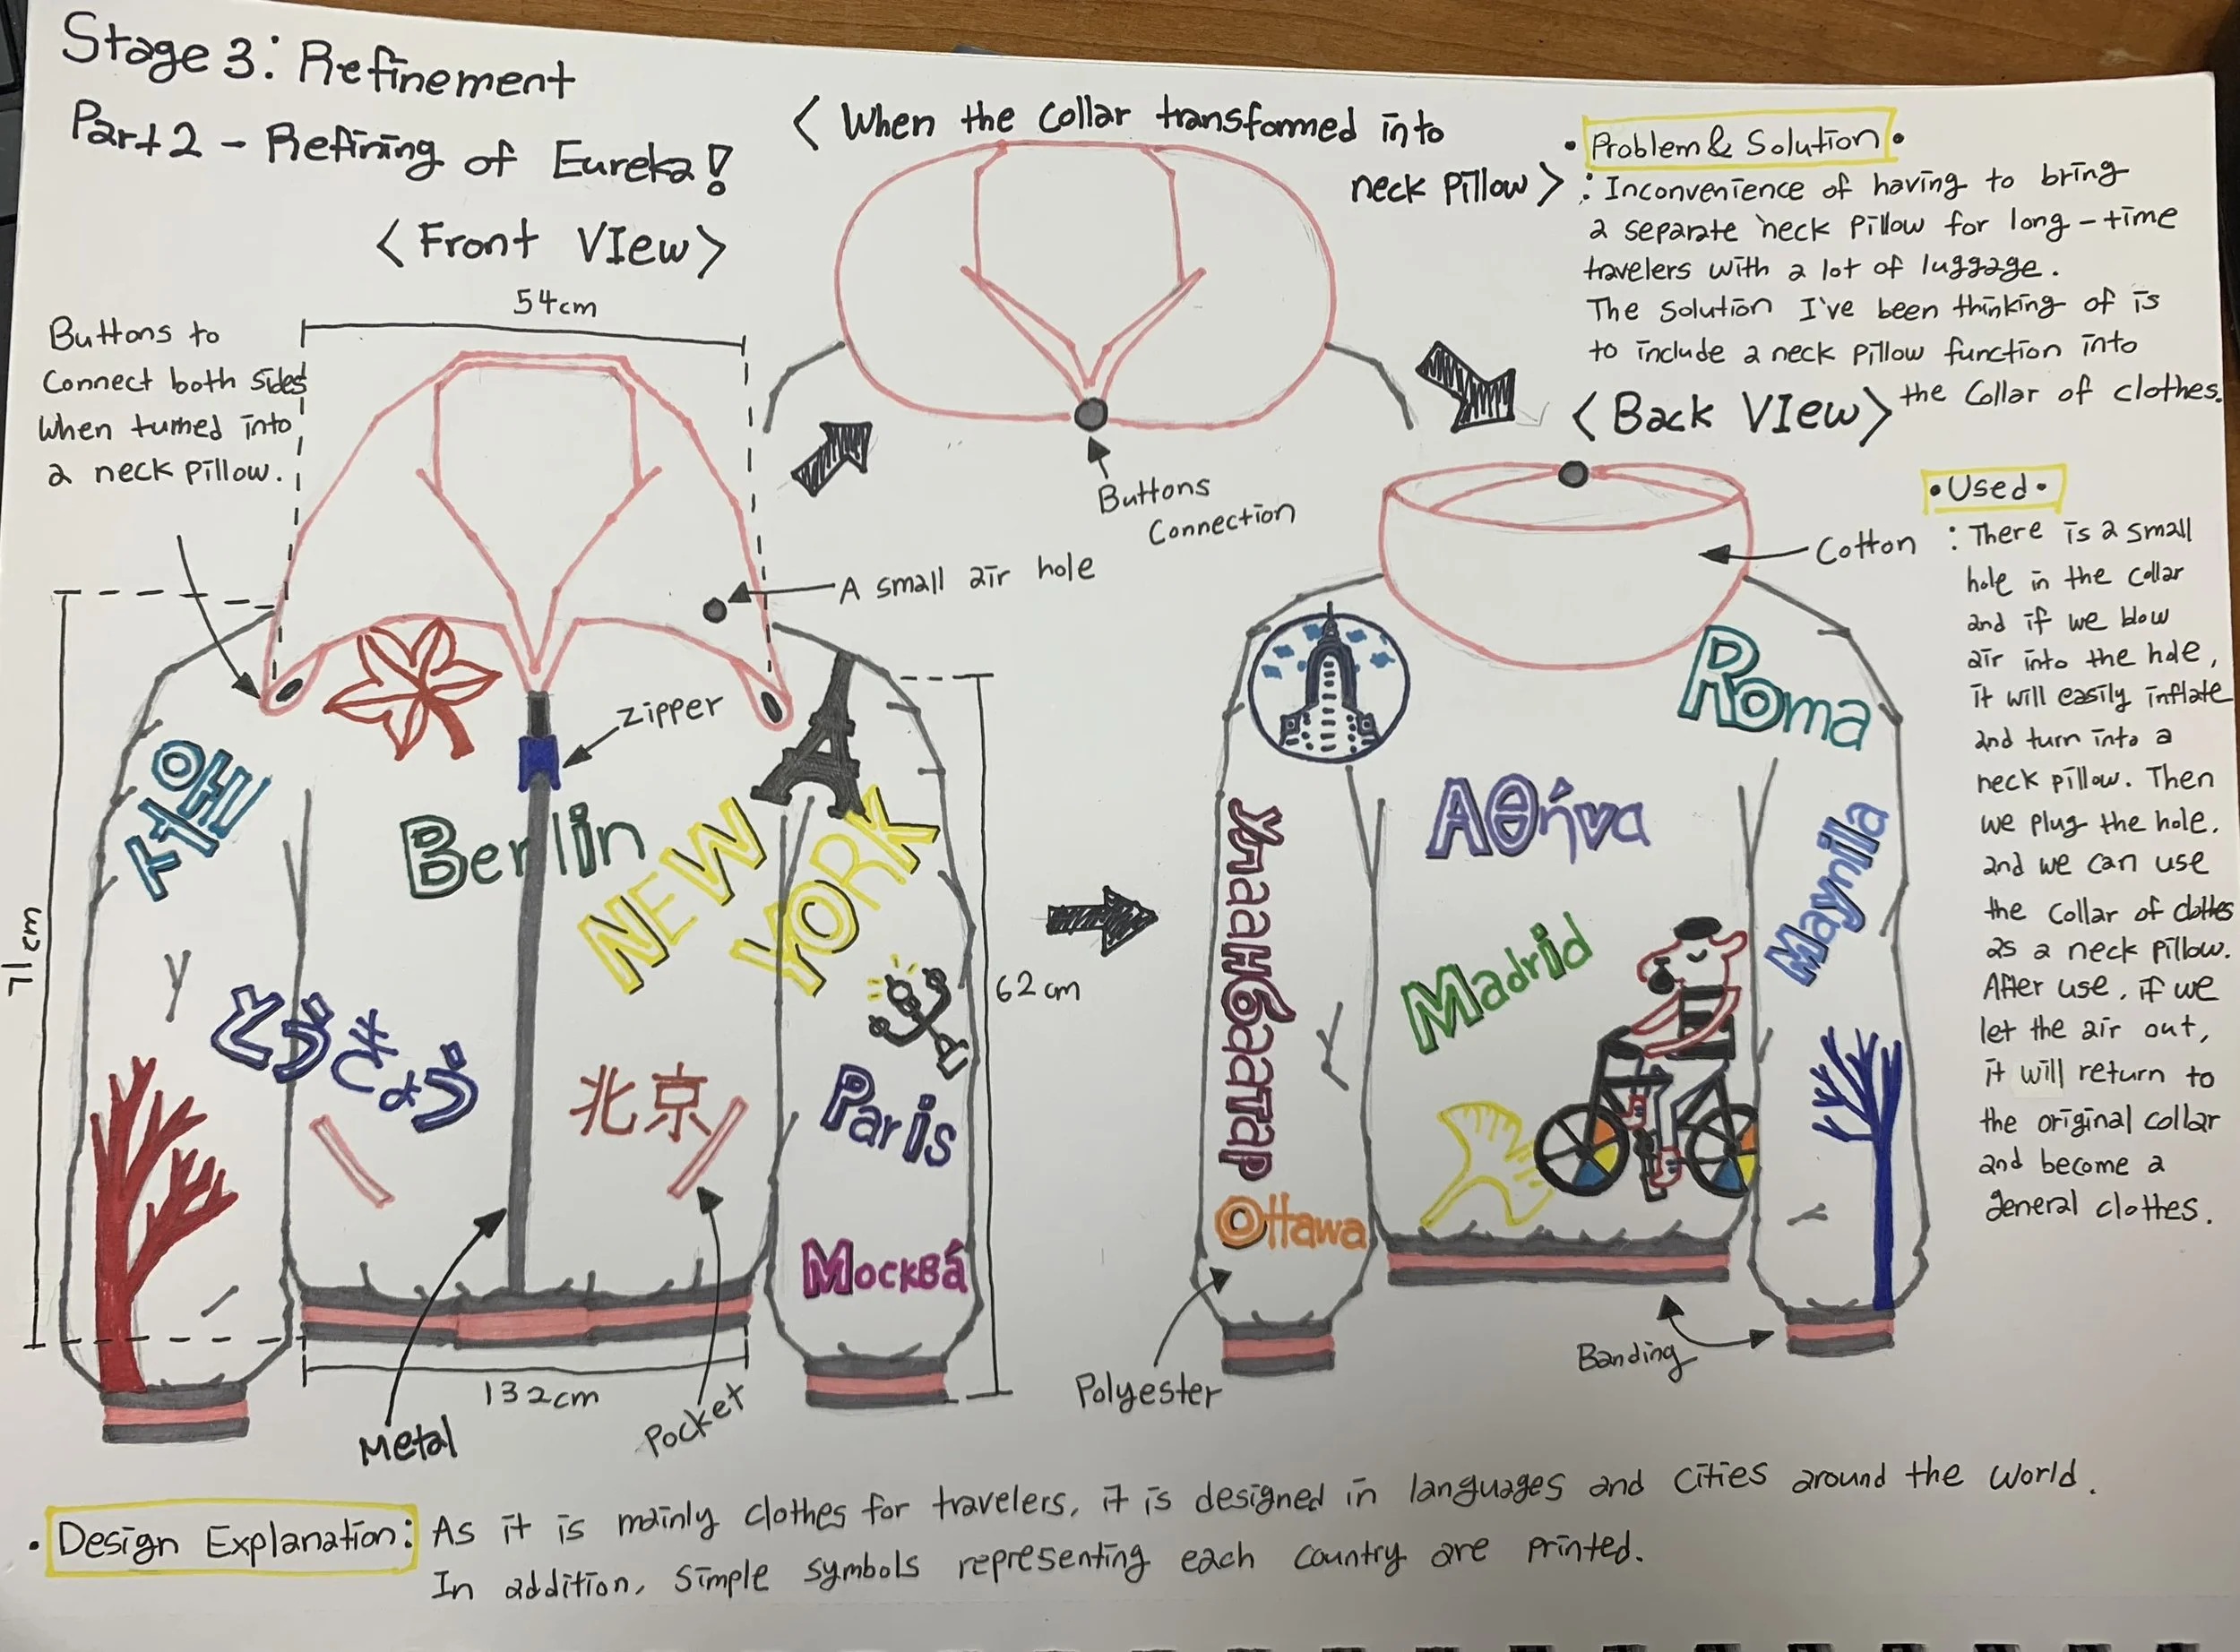 Stage 3: Refinement
Part 2 - Refining of Eureka!
< Front View >
54cm
Buttons to
connect both sides
when turned into
a neck pillow.
< When the collar transformed into
neck pillow >
Buttons
Connection
A small air hole
zipper
서울
Berlin
NEW
YORK
とうきょう
北京
Paris
Москвá
71cm
62cm
132cm
Metal
Pocket
• Problem & Solution •
: Inconvenience of having to bring
a separate neck pillow for long-time
travelers with a lot of luggage.
The solution I've been thinking of is
to include a neck pillow function into
the collar of clothes.
< Back View >
Cotton
Roma
Αθήνα
Улаанбаатар
Madrid
Maynila
Ottawa
Polyester
Banding
• Used •
: There is a small
hole in the collar
and if we blow
air into the hole,
it will easily inflate
and turn into a
neck pillow. Then
we plug the hole,
and we can use
the collar of clothes
as a neck pillow.
After use, if we
let the air out,
it will return to
the original collar
and become a
general clothes.
• Design Explanation: As it is mainly clothes for travelers, it is designed in languages and cities around the world.
In addition, simple symbols representing each country are printed.